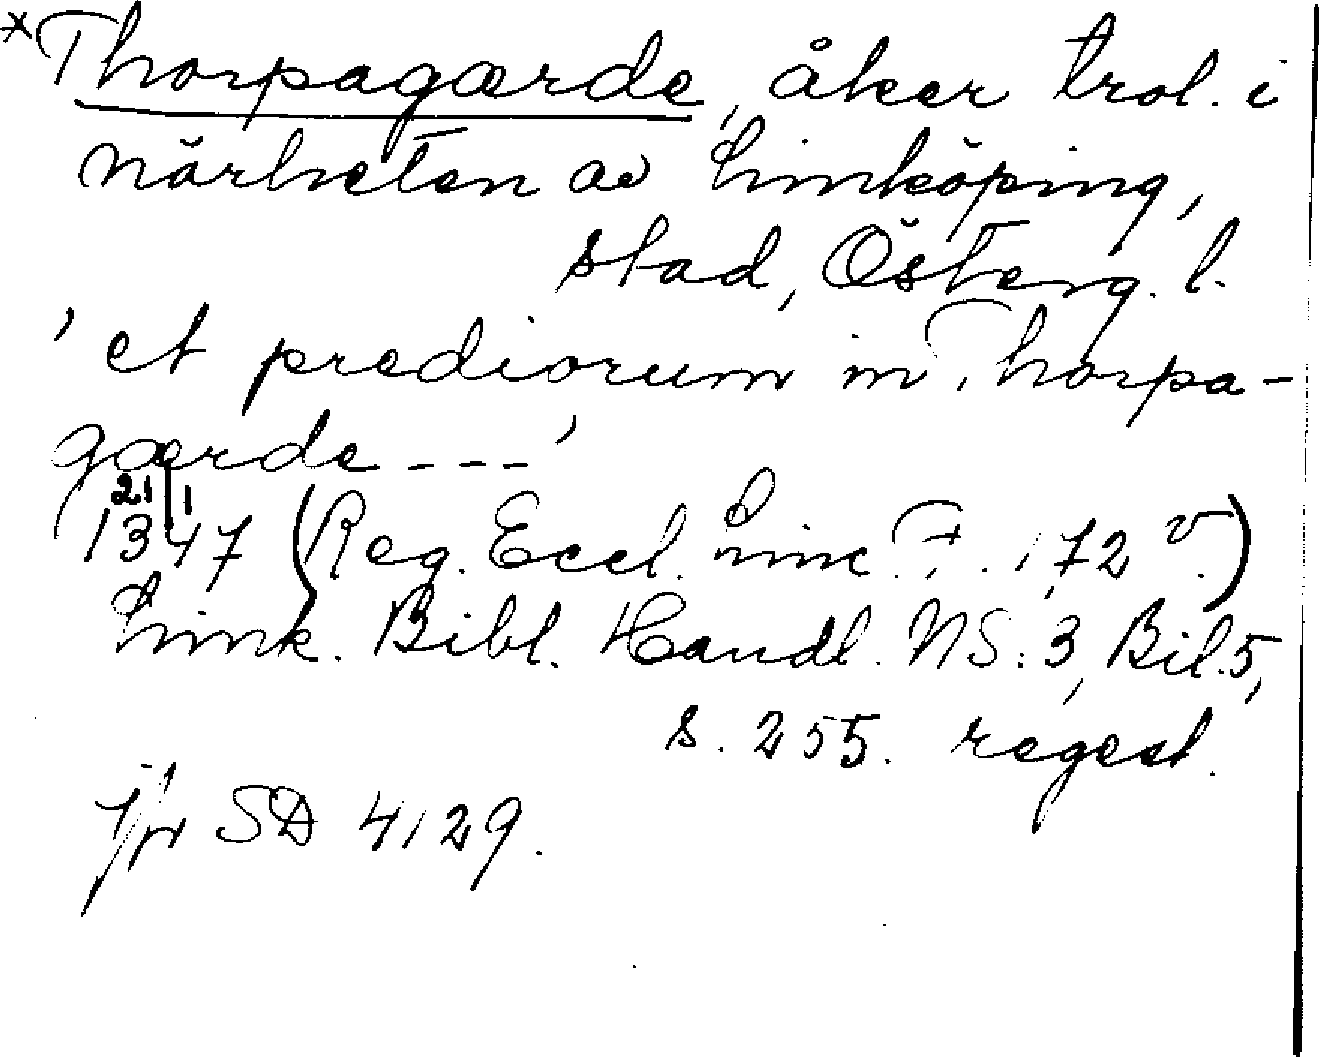 *Thorpagærde, åker trol. i
närheten av Linköping,
stad, Österg. l.
'et prediorum in Thorpa-
gærde - - - '
21/1
1347 (Reg. Eccl. Linc. F. 172 v.)
Link. Bibl. Handl. NS: 3, Bil. 5,
s. 255. regest.
Jfr SD 4129.